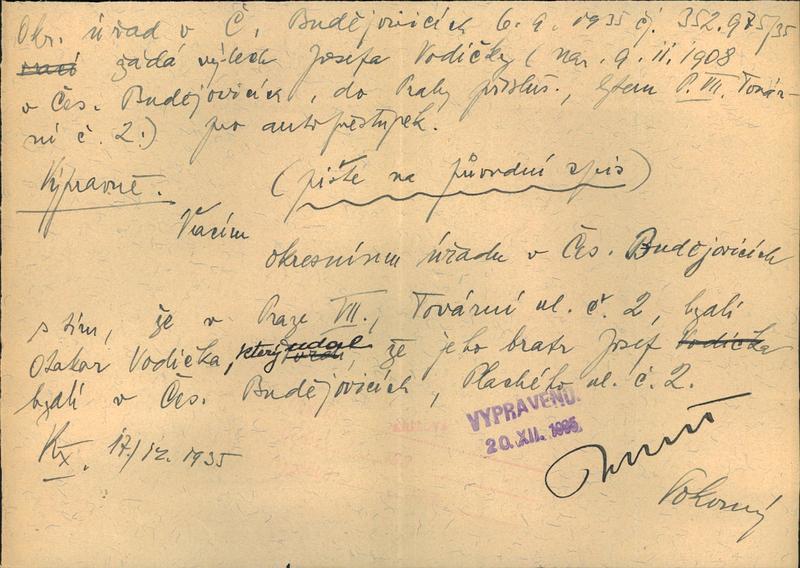 Okr. úřad v Č. Budějovicích 6. 9. 1935 čj. 352.975/35
žádá výslech Josefa Vodičky (nar. 9. II. 1908
v Čes. Budějovicích, do Prahy přísluš., bytem P. VII. Továr-
ní č. 2.) pro autopřestupek.
Výpravně. (pište na původní spis)
Vracím
okresnímu úřadu v Čes. Budějovicích
s tím, že v Praze VII., Tovární ul. č. 2, bydlí
Otakar Vodička, který udal že jeho bratr Josef Vodička
bydlí v Čes. Budějovicích, Plachého ul. č. 2.
VYPRAVENO.
20. XII. 1935
17/12. 1935
Pokorný